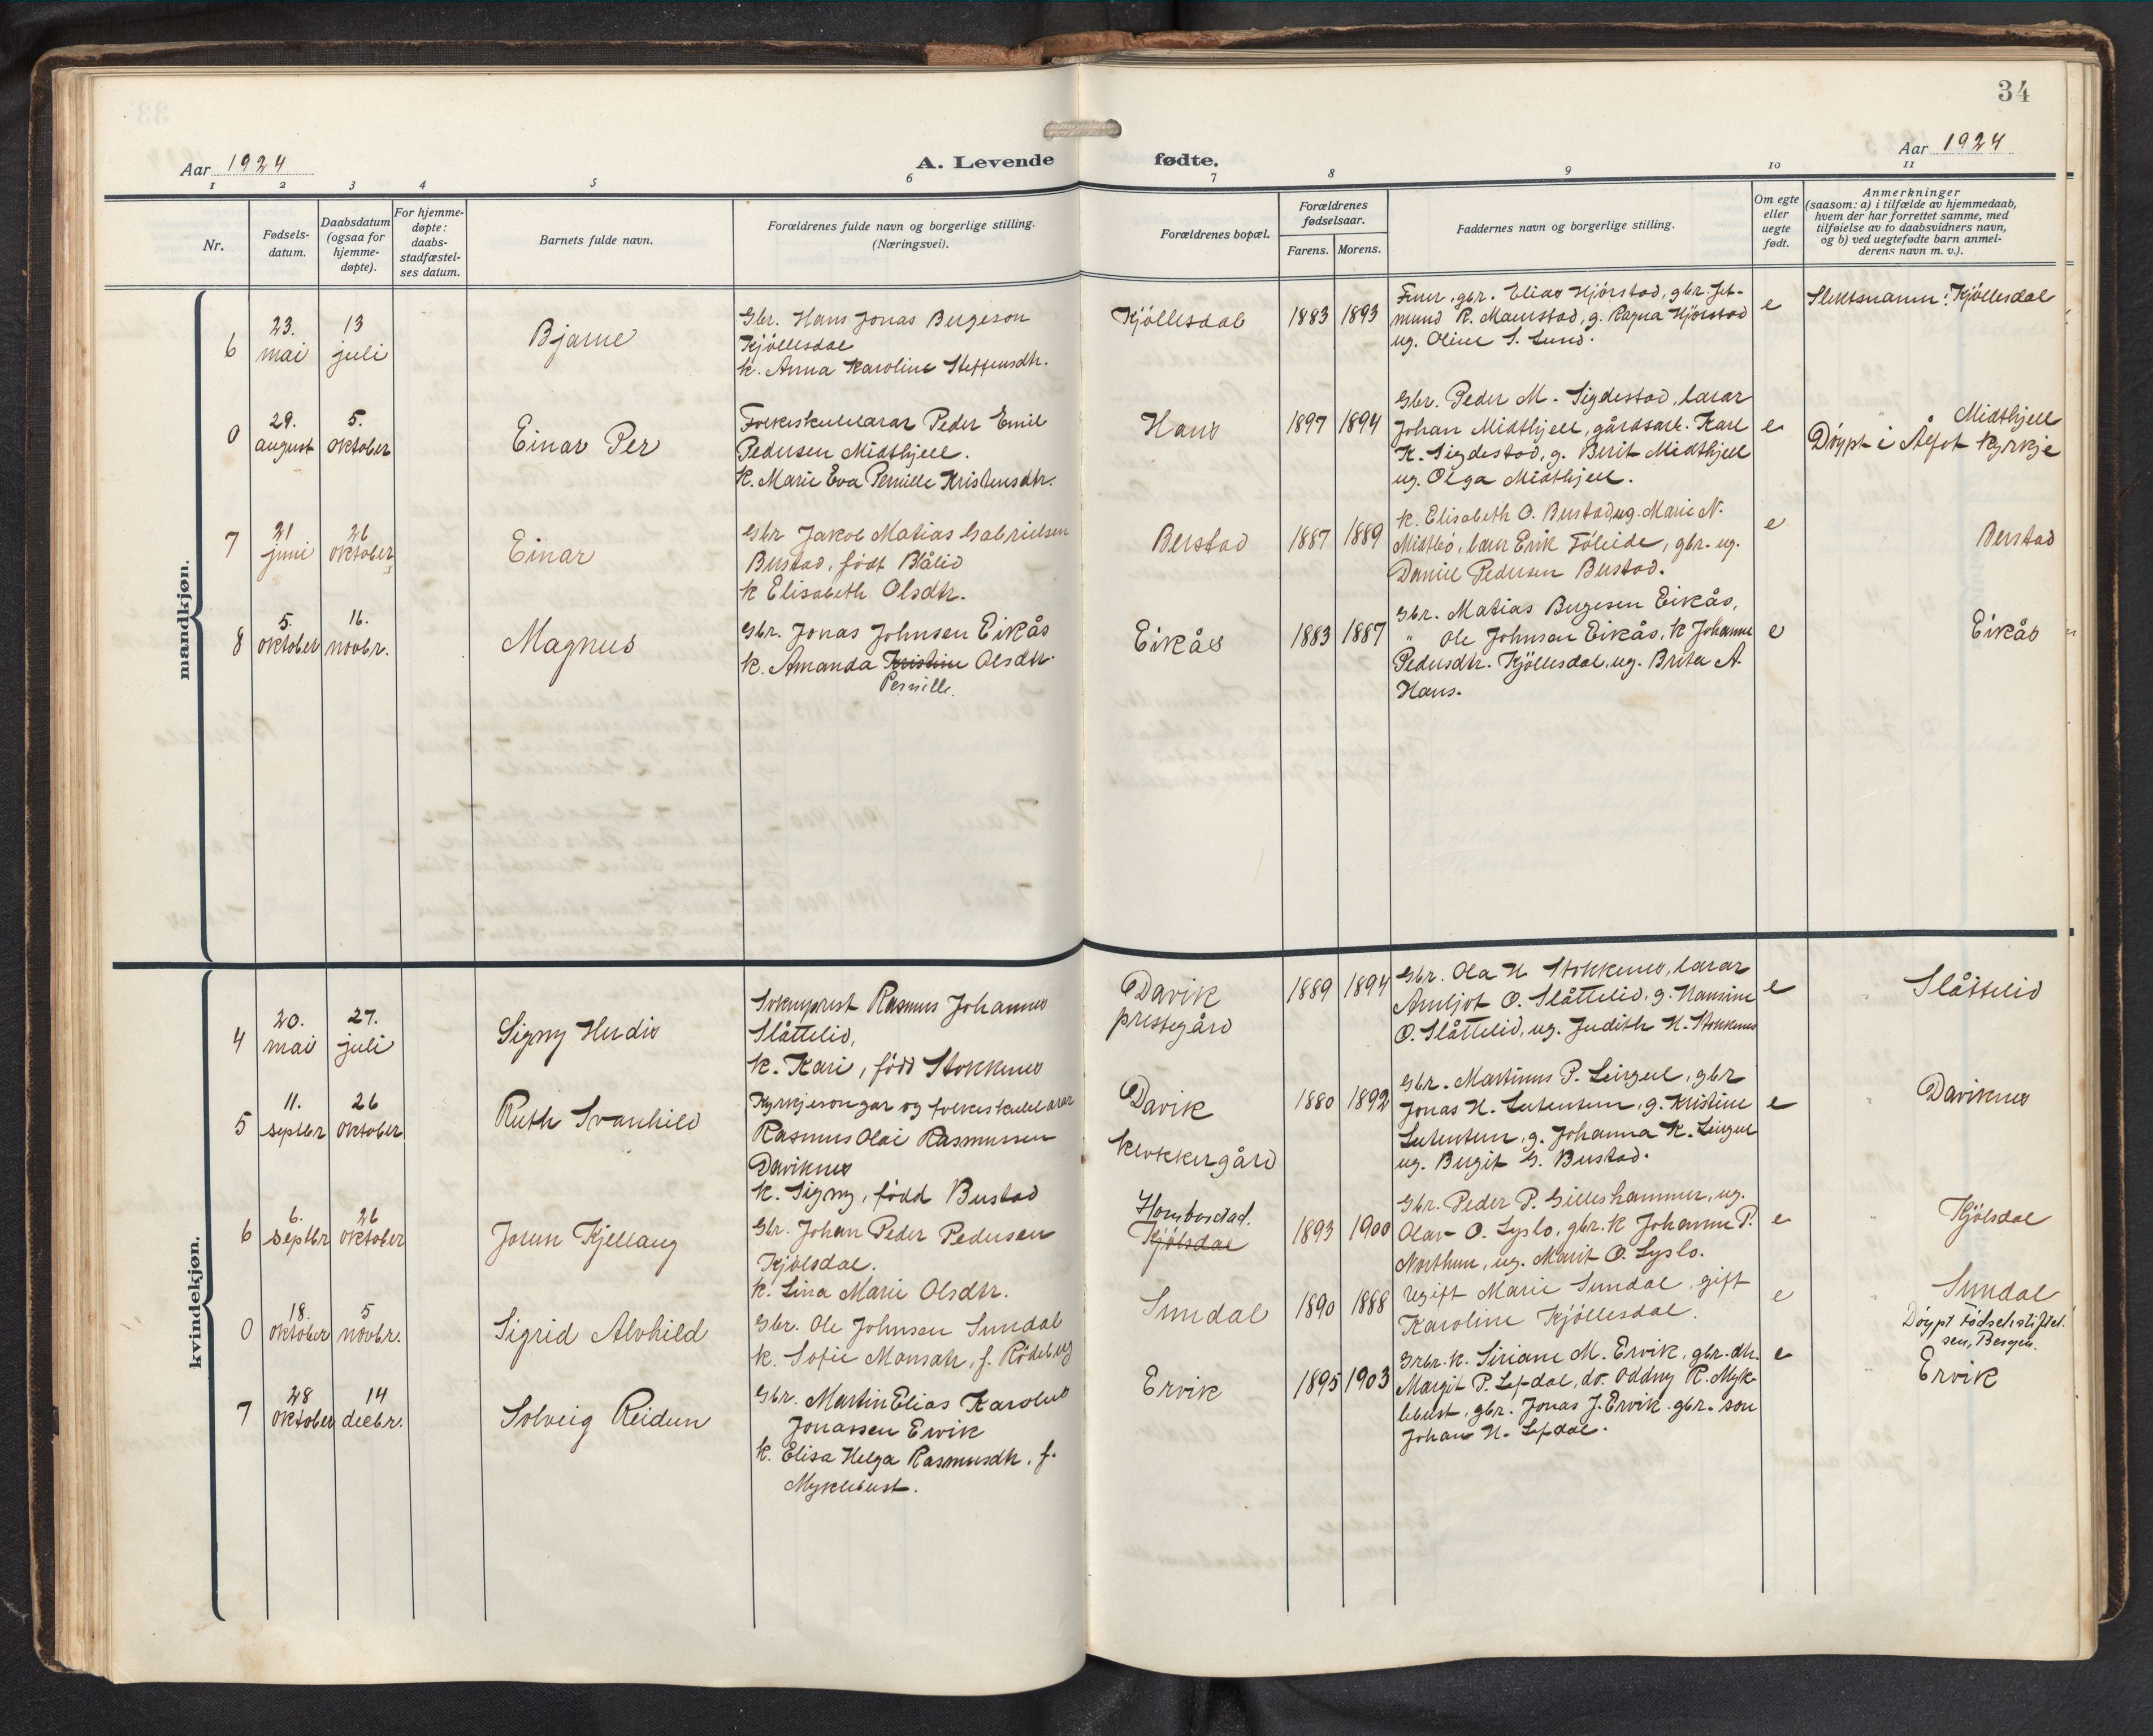 34
Aar 1924
A. Levende fødte.
Aar 1924
1 2 3 4 5 6 7 8 9 10 11
Nr.
Fødsels-
datum.
Daabsdatum
(ogsaa for
hjemme-
døpte).
For hjemme-
døpte:
daabs-
stadfæstel-
ses datum.
Barnets fulde navn.
Forældrenes fulde navn og borgerlige stilling.
(Næringsvei).
Forældrenes bopæl.
Forældrenes
fødselsaar.
Farens. Morens.
Faddernes navn og borgerlige stilling.
Om egte
eller
uegte
født.
Anmerkninger
(saasom: a) i tilfælde av hjemmedaab,
hvem der har forrettet samme, med
tilføielse av to daabsvidners navn,
og b) ved uegtefødte barn anmel-
derens navn m. v.).
mandkjøn.
6
23.
mai
13
juli
Bjarne
Gbr. Hans Jonas Bergeson
Kjöllesdal
k. Anna Karoline Steffensdtr.
Kjöllesdal
1883
1893
gbr. Elias Hjörstad, gbr. Set-
mund R. Maurstad, g. Ragna Hjörstad
ug. Oline S. Lund.
e
Slektsnamn: Kjöllesdal
0
29.
august
5.
oktober
Einar Per
Folkeskulelærar Peder Emil
Pedersen Midthjell.
k. Marie Eva Pernille Kristensdtr.
Haus
1897
1894
Gbr. Peder M. Sigdestad, lærar
Johan Midthjell, gårdsarb. Karl
K. Sigdestad, g. Berit Midthjell
ug. Olga Midthjell.
e
" Midthjell
Døypt i Ålfot kyrkje
7
21
juni
26
oktober
Einar
Gbr Jakob Matias Gabrielsen
Berstad, født Blålid
k Elisabeth Olsdtr.
Berstad
1887
1889
k. Elisabeth O. Berstad, ug. Marie N.
Midtbö, lærer Erik Föleide, gbr. ug.
Daniel Pedersen Berstad.
e
Berstad
8
5.
oktober
16.
novbr.
Magnus
Gbr. Jonas Johnsen Eikås
k. Amanda Kristine Olsdtr.
Pernille.
Eikås
1883
1887
Gbr. Matias Bergesen Eikås,
" Ole Johnsen Eikås, k Johanne
Pedersdtr. Kjöllesdal, ug. Brita A.
Haus.
e
Eikås
kvindekjøn.
4
20.
mai
27.
juli
Signy Herdis
Sokneprest Rasmus Johannes
Slåttelid,
k. Kari, född Stokknes
Davik
prestegård
1889
1894
Gbr. Ola H Stokknes, lærar
Arnljot O. Slåttelid, g. Hansine
O. Slåttelid, ug. Judith H. Stokknes
e
" Slåttelid
5
11.
septbr
26
oktober
Ruth Svanhild
Kyrkjesongar og folkeskulelærar
Rasmus Olai Rasmussen
Daviknes
k. Signy, född Berstad
Davik
klokkergård
1880
1892
Gbr. Martinus P. Leirgul, gbr
Jonas H. Lutentun, g. Kristine
Lutentun, g. Johanna K. Leirgul
ug. Bergit G. Berstad.
e
" Daviknes
6
6.
septbr
26
oktober
Jorun Kjellaug
Gbr. Johan Peder Pedersen
Kjölsdal.
k. Lina Marie Olsdtr.
Hornbostad.
Kjölsdal
1893
1900
Gbr. Peder P. Gilleshammer, ug.
Olav O. Lyslo, gbr. k Johanne P.
Northun, ug. Marit O. Lyslo.
e
" Kjölsdal
0
18.
oktober
5
novbr.
Sigrid Alvhild
Gbr. Ole Johnsen Sundal
k. Sofie Monsdtr, f. Rödberg
Sundal
1890
1888
Ugift Marie Sundal, gift
Karoline Kjöllesdal.
e
" Sundal
Døypt Fødselsstiftel-
sen, Bergen.
7
28
oktober
14
decbr.
Solveig Reidun
Gbr. Martin Elias Karolus
Jonassen Ervik
k. Elisa Helga Rasmusdtr, f.
Myklebust.
Ervik
1895
1903
Grbr. k. Siriane M. Ervik, gbr. dtr.
Margit P. Lefdal, do. Oddny R. Myk-
lebust, gbr. Jonas J. Ervik, gbr. son
Johan H. Lefdal.
e
Ervik